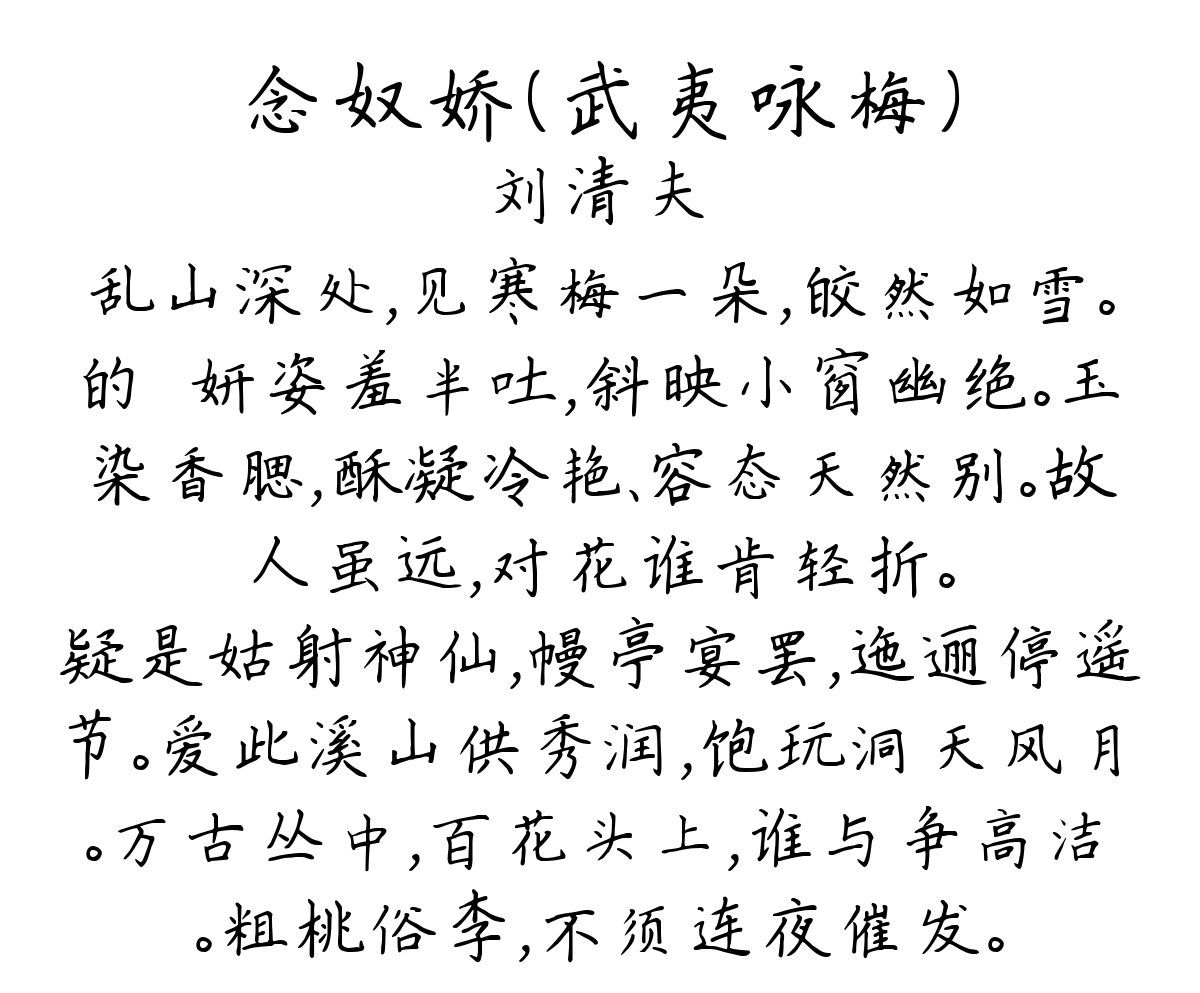 念奴娇(武夷咏梅)
刘清夫
乱山深处,见寒梅一朵,皎然如雪。
的 妍姿羞半吐,斜映小窗幽绝。玉
染香腮,酥凝冷艳、容态天然别。故
人虽远,对花谁肯轻折。
疑是姑射神仙,幔亭宴罢,迤逦停遥
节。爱此溪山供秀润,饱玩洞天风月
。万古丛中,百花头上,谁与争高洁
。粗桃俗李,不须连夜催发。